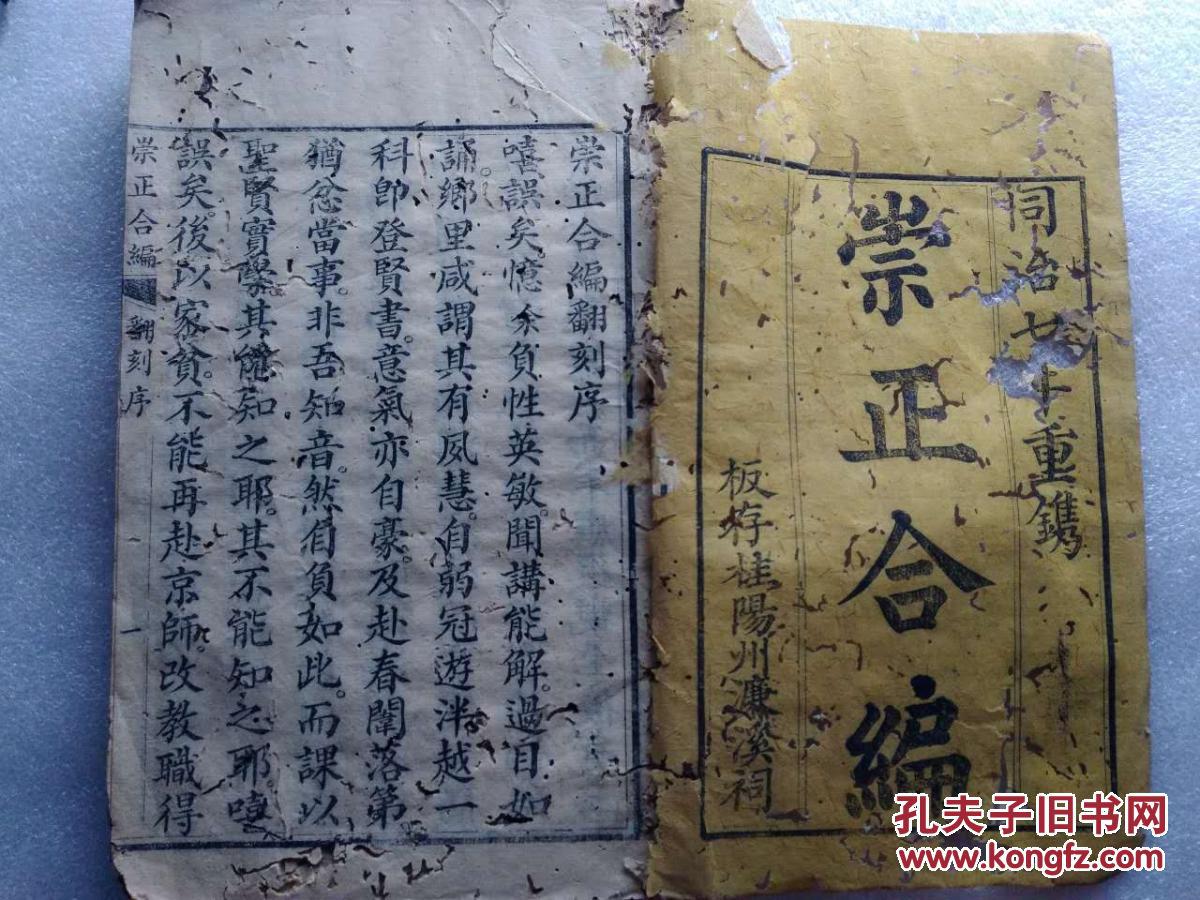 同治七年重鐫
崇正合編
板存桂陽州濂溪祠
崇正合編翻刻序
嘻誤矣。憶余負性英敏。聞講能解。過目如
誦。鄉里咸謂其有夙慧。自弱冠遊泮越一
科即登賢書。意氣亦自豪。及赴春闈落第
猶忿當事。非吾知音。然自負如此。而課以
聖賢實學其能知之耶。其不能知之耶。嘻
誤矣。後以家貧。不能再赴京師。改教職得
崇正合編
翻刻序
一
孔夫子旧书网
www.kongfz.com